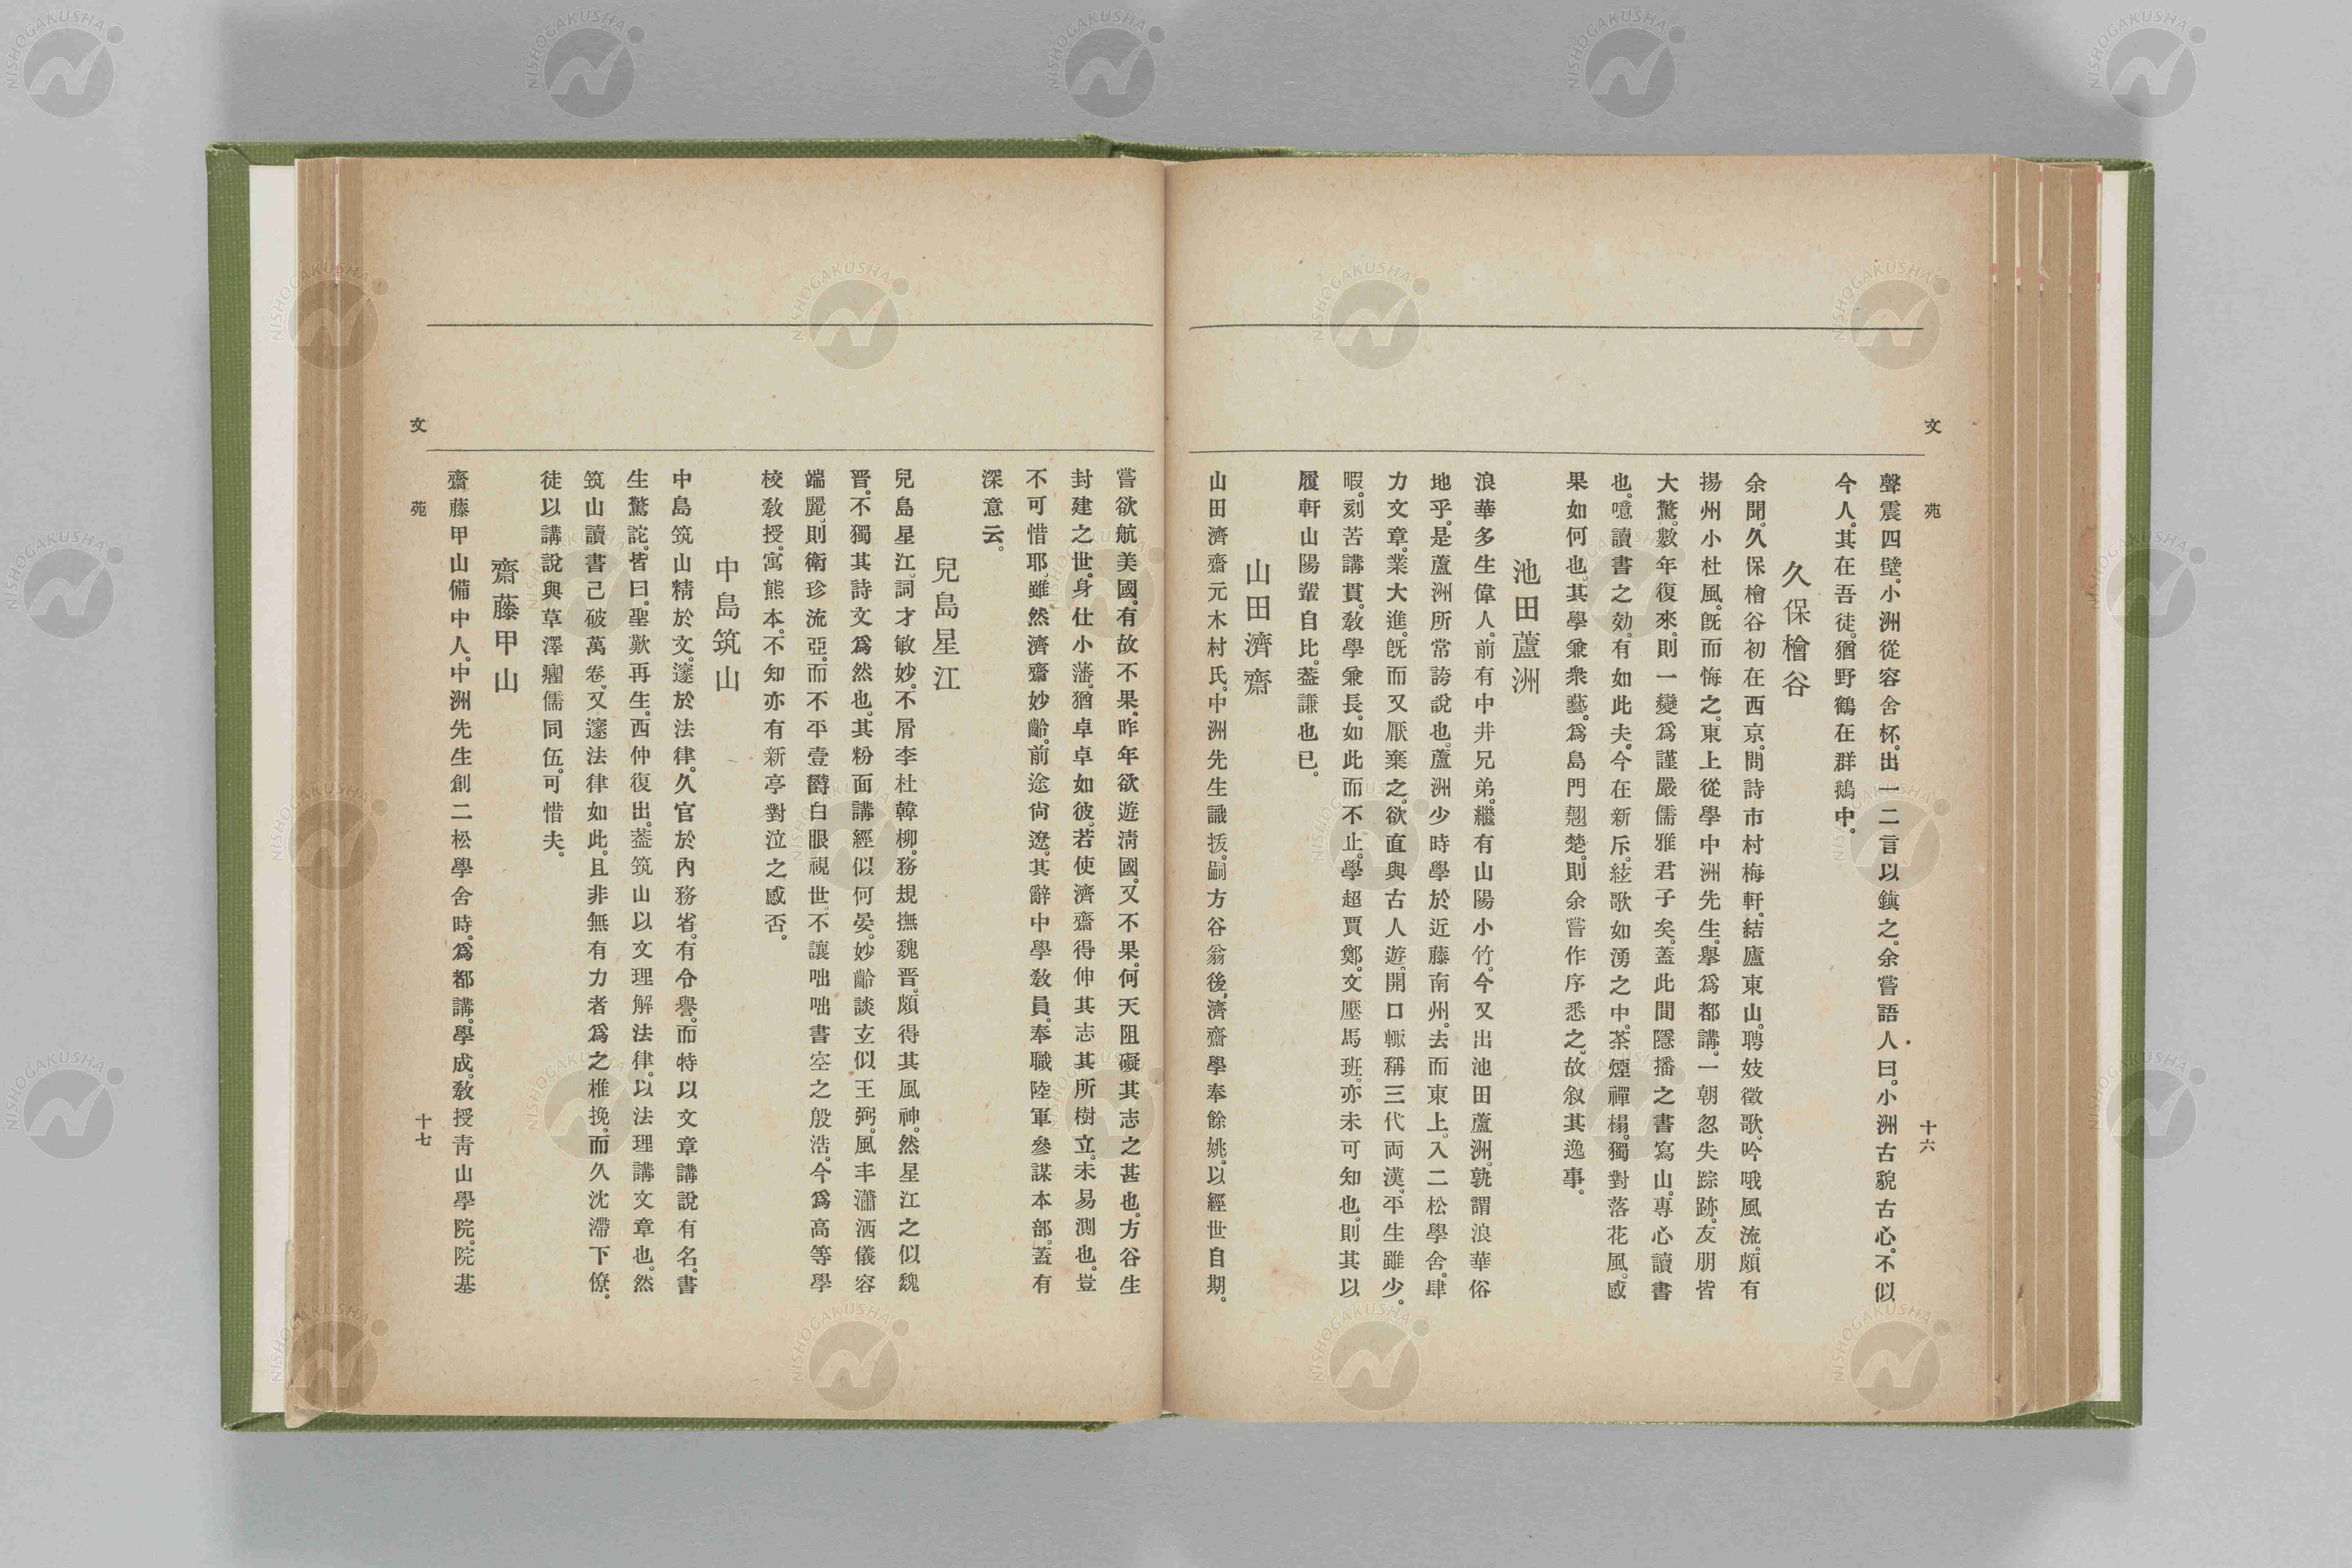 文苑
十六
聲震四壁。小洲從容舍杯。出一二言以鎮之。余嘗語人曰。小洲古貌古心。不似
今人。其在吾徒。猶野鶴在群鵝中。
久保檜谷
余聞。久保檜谷初在西京。問詩市村梅軒。結廬東山。聘妓徵歌。吟哦風流。頗有
揚州小杜風。既而悔之。東上從學中洲先生。擧爲都講。一朝忽失踪跡。友朋皆
大驚。數年復來。則一變爲謹嚴儒雅君子矣。蓋此間隱播之書寫山。專心讀書
也。噫讀書之効。有如此夫。今在新斥。絃歌如湧之中。茶煙禪榻。獨對落花風。感
果如何也。其學兼衆藝。爲島門翹楚。則余嘗作序悉之。故叙其逸事。
池田蘆洲
浪華多生偉人。前有中井兄弟。繼有山陽小竹。今又出池田蘆洲。孰謂浪華俗
地乎。是蘆洲所常誇說也。蘆洲少時學於近藤南州。去而東上。入二松學舍。肆
力文章。業大進。既而又厭棄之。欲直與古人遊。開口輙稱三代両漢。平生雖少。
暇。刻苦講貫。敎學兼長。如此而不止。學超賈鄭。文壓馬班。亦未可知也。則其以
履軒山陽輩自比。葢謙也已。
山田濟齋
山田濟齋元木村氏。中洲先生識拔。嗣方谷翁後。濟齋學奉餘姚。以經世自期。
嘗欲航美國。有故不果。昨年欲遊淸國。又不果。何天阻礙其志之甚也。方谷生
封建之世。身仕小藩。猶卓卓如彼。若使濟齋得伸其志其所樹立。未易測也。豈
不可惜耶。雖然濟齋妙齡。前途尙遼。其辭中學敎員。奉職陸軍參謀本部。蓋有
深意云。
兒島星江
兒島星江。詞才敏妙。不屑李杜韓柳。務規撫魏晋。頗得其風神。然星江之似魏
晋。不獨其詩文爲然也。其粉面講經似何晏。妙齡談玄似王弼。風丰瀟洒儀容
端麗。則衛珍流亞。而不平壹欝白眼視世。不讓咄咄書空之殷浩。今爲高等學
校敎授。寓熊本。不知亦有新亭對泣之感否。
中島筑山
中島筑山精於文。邃於法律。久官於內務省。有令譽。而特以文章講說有名。書
生驚詫。皆曰。聖歎再生。西仲復出。葢筑山以文理解法律。以法理講文章也。然
筑山讀書己破萬卷。又邃法律如此。且非無有力者爲之椎挽。而久沈滯下僚。
徒以講說與草澤癯儒同伍。可惜夫。
齋藤甲山
齋藤甲山備中人。中洲先生創二松學舍時。爲都講。學成。敎授靑山學院。院基
文苑
十七
NISHOGAKUSHA